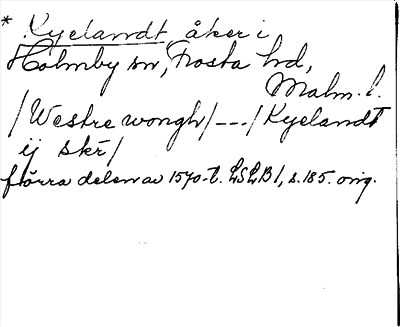 * Kyelandt, åker i
Holmby sn, Frosta hd,
Malm. l.
/Westre wongh/---/Kyelandt
ij skr/
förra delen av 1570-t. LSLB1, s. 185. orig.